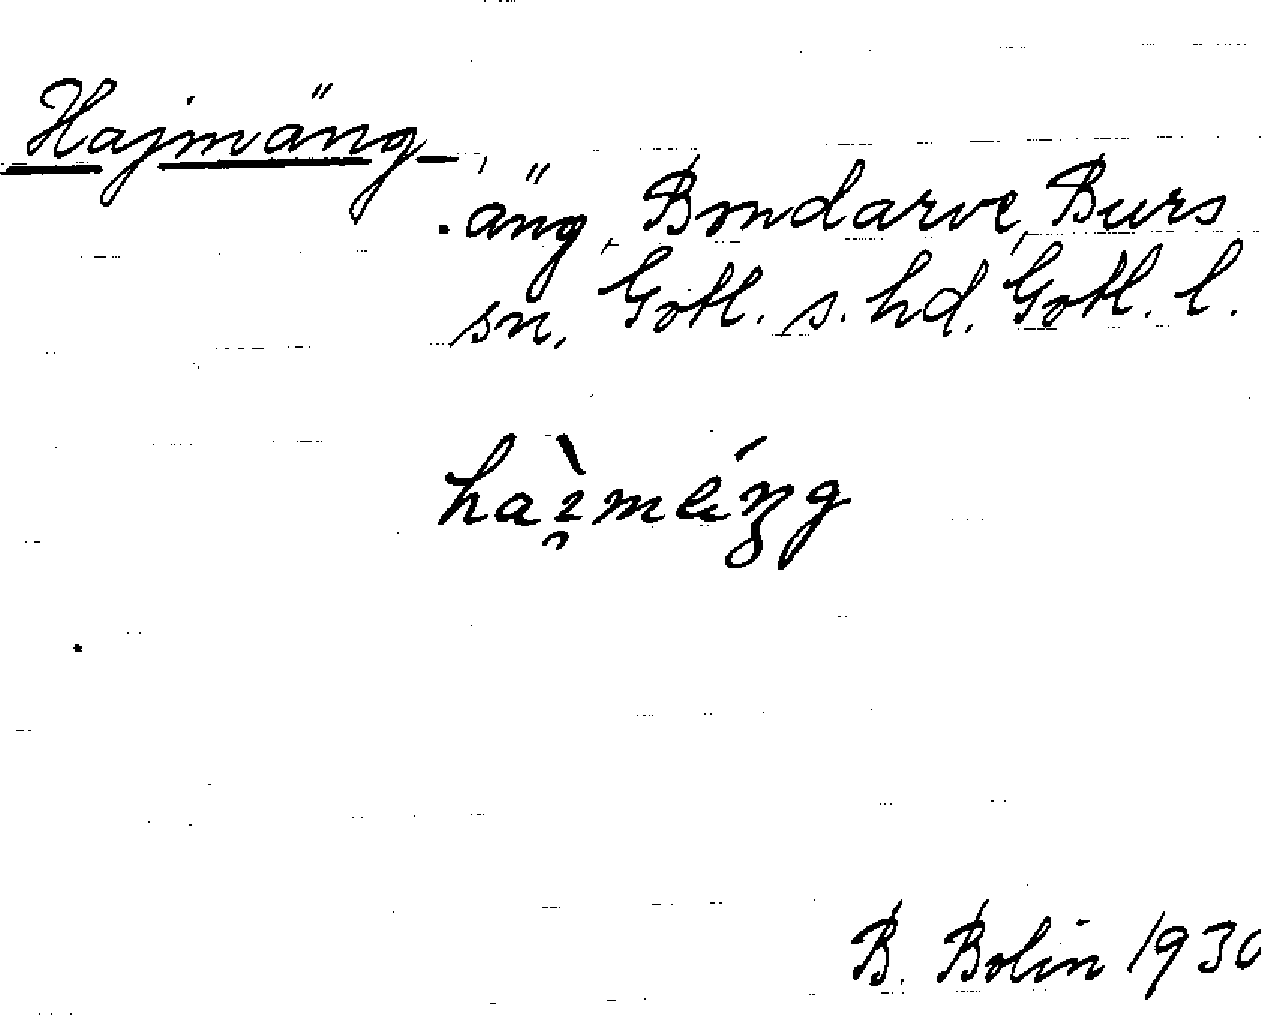 Hajmäng
äng, Bondarve, Burs
sn, Gotl. s. hd. Gotl. l.
B. Bolin 1930